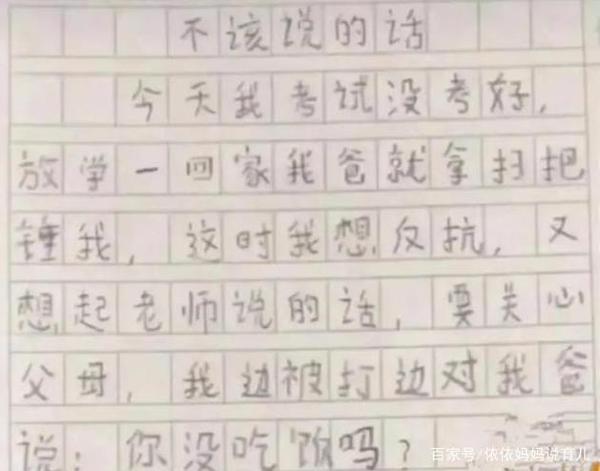 不该说的话
今天我考试没考好，
放学一回家我爸就拿扫把
锤我，这时我想反抗，又
想起老师说的话，要关心
父母，我边被打边对我爸
说：你没吃饭吗？
百家号/依依妈妈说育儿